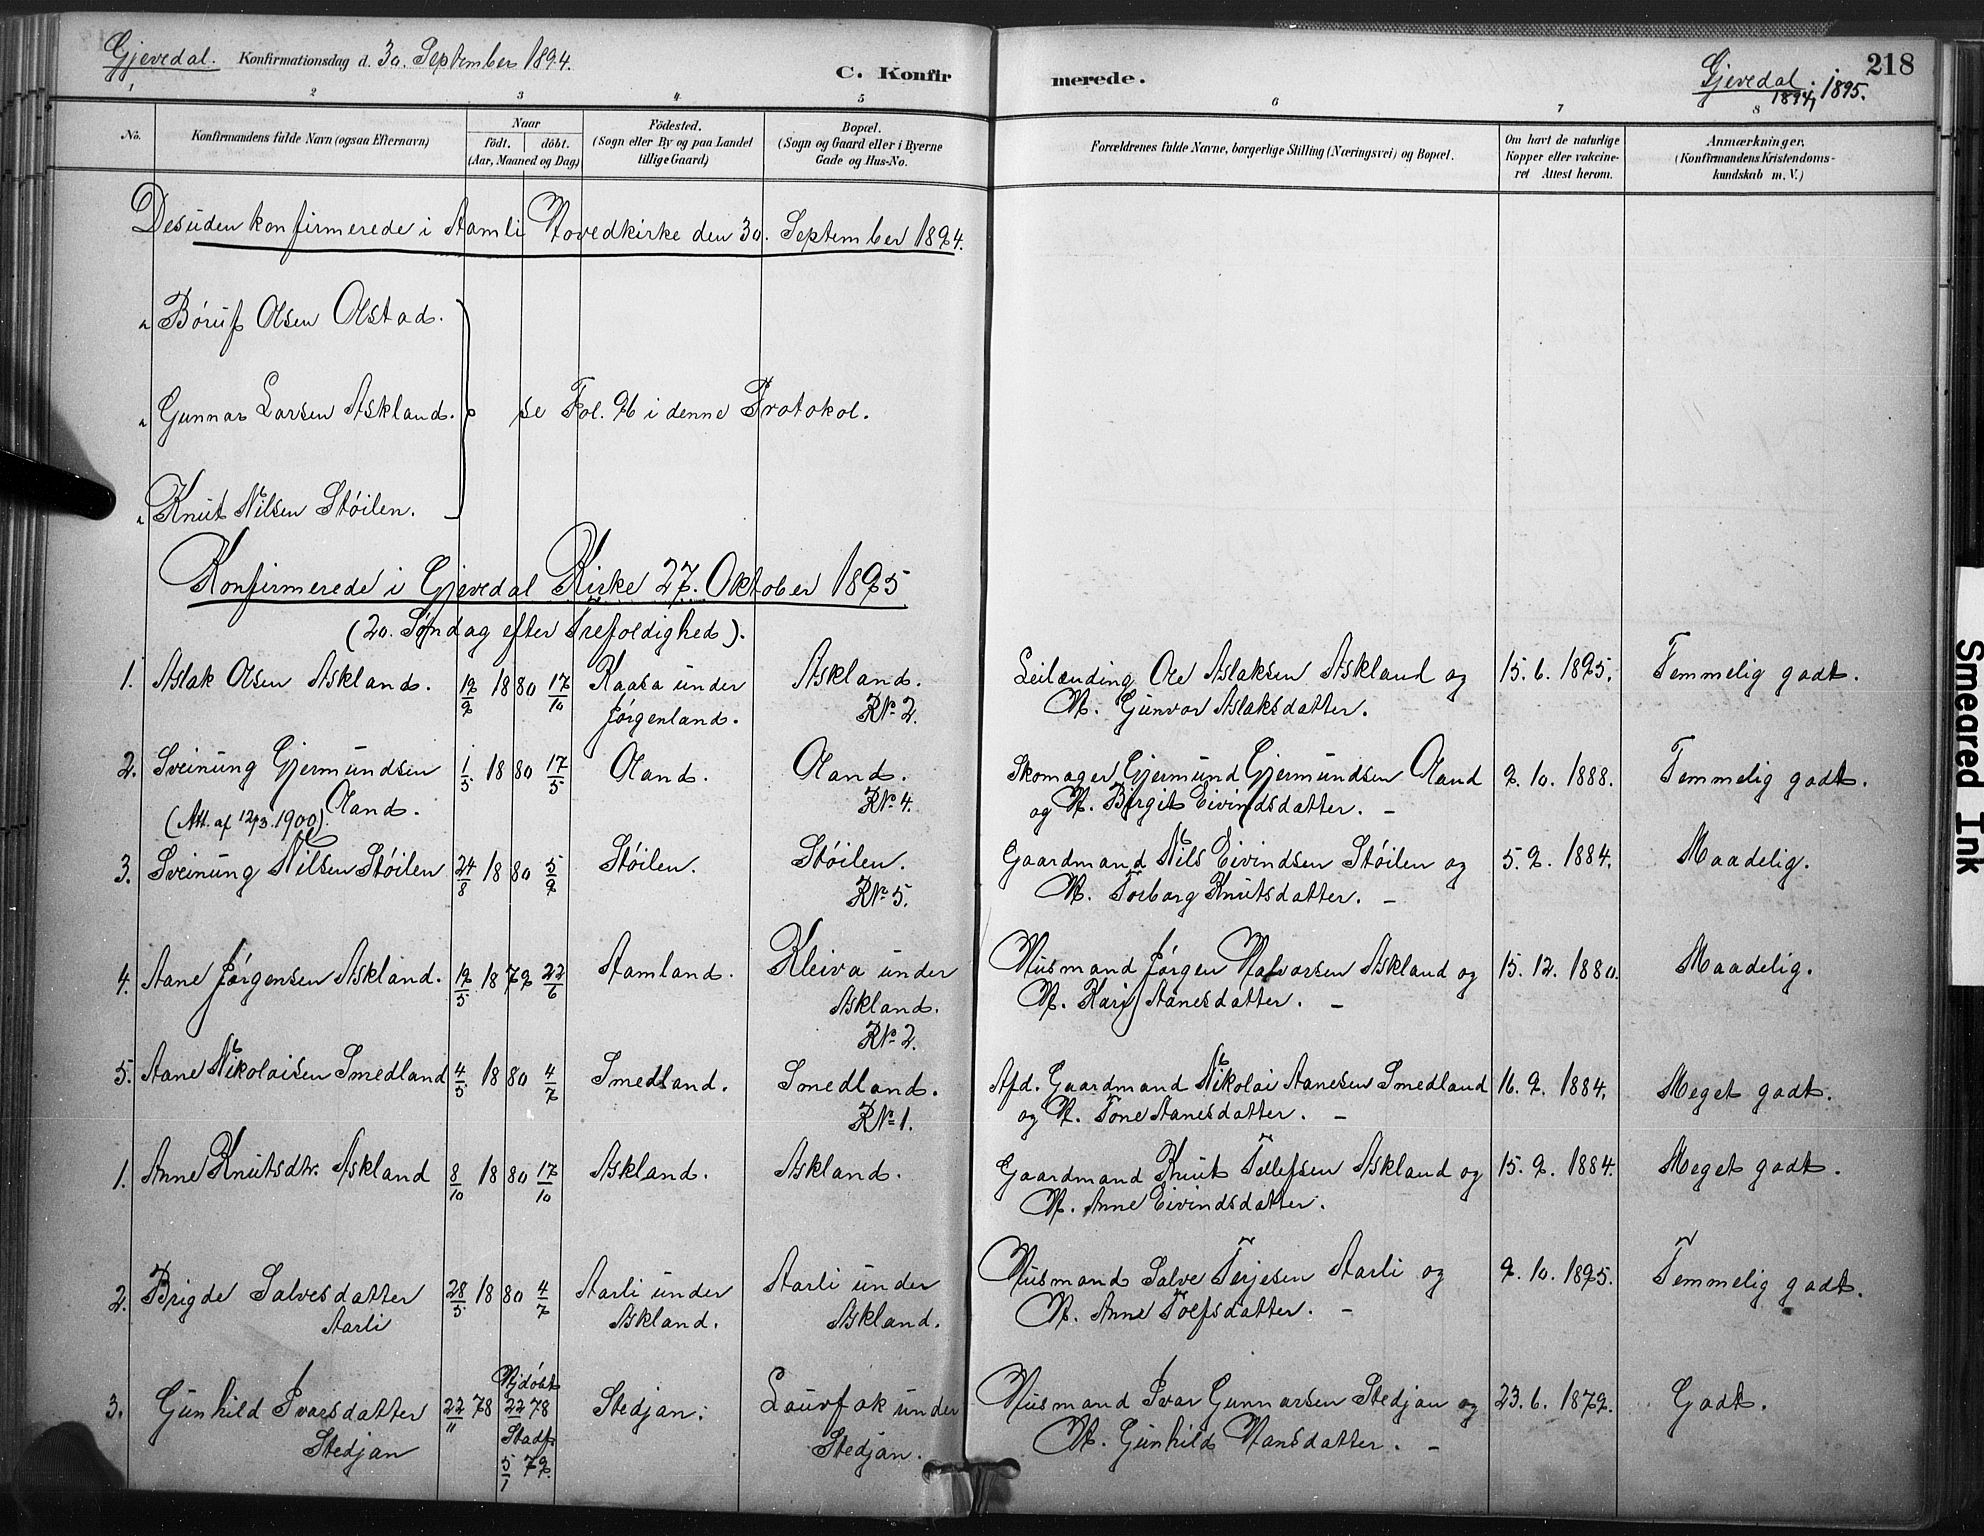 Gjevedal. Konfirmationsdag d. 30. September 1894.
C. Konfirmerede.
Gjevedal. 218
1894, 1895.
1 2 3 4 5 6 7 8
No. Konfirmandens fulde Navn (ogsaa Efternavn)
Naar
födt. döbt.
(Aar, Maaned og Dag)
Födested.
(Sogn eller By og paa Landet
tillige Gaard)
Bopæl.
(Sogn og Gaard eller i Byerne
Gade og Hus-No.
Forældrenes fulde Navne, borgerlige Stilling (Næringsvei) og Bopæl.
Om havt de naturlige
Kopper eller vakcine-
ret Attest herom.
Anmærkninger.
(Konfirmandens Kristendoms-
kundskab m. V.)
Desuden konfirmerede i Aamli Hovedkirke den 30. September 1894.
" Børuf Olsen Olstad.
" Gunnar Larsen Askland. } se Fol. 96 i denne Protokol.
" Knut Nilsen Støilen.
Konfirmerede i Gjevedal Kirke 27. Oktober 1895
(20. Søndag efter Trefoldighed).
1. Aslak Olsen Askland. 19/9 1880 17/10 Kaasa under Askland. Leilænding Ole Aslaksen Askland og 15. 6. 1895. Temmelig godt.
Jørgenland. R№ 2. H. Gunvor Aslaksdatter.
2. Sveinung Gjermundsen 1/5 1880 17/5 Oland. Oland. Skomager Gjermund Gjermundsen Oland 9. 10. 1888. Temmelig godt.
Oland. R№ 4. og H. Birgit Eivindsdatter. –
(Att. af 12/3. 1900)
3. Sveinung Nilsen Støilen 24/8 1880 5/9 Støilen. Støilen. Gaardmand Nils Eivindsen Støilen og 5. 9. 1884. Maadelig.
R№ 5. H. Torborg Knutsdatter. –
4. Aane Jørgensen Askland. 19/5 1879 22/6 Aamland. Kleiva under Husmand Jørgen Halvorsen Askland og 15. 12. 1880. Maadelig.
Askland. H. Kari Aanesdatter. –
R№ 2.
5. Aane Nikolaisen Smedland 4/5 1880 4/7 Smedland. Smedland. Afd. Gaardmand Nikolai Aanesen Smedland 16. 9. 1884. Meget godt.
R№ 1. og H. Tone Aanesdatter. –
1. Anne Knutsdtr. Askland 8/10 1880 17/10 Askland. Askland. Gaardmand Knut Tellefsen Askland og 15. 9. 1884. Meget godt.
H. Anne Eivindsdatter.
2. Brigde Salvesdatter 28/5 1880 4/7 Aarli under Aarli under Husmand Salve Terjesen Aarli og 9. 10. 1895. Temmelig godt.
Aarli Askland. Askland. H. Anne Tolfsdatter. –
3. Gunhild Ivarsdatter 22/11 78 Hjdøbt 22 78 Stedjan. Laurfok under Husmand Ivar Gunnarsen Stedjan og 23. 6. 1879. Godt.
Stedjan Stadf. 5/1 79. Stedjan. H. Gunhild Hansdatter. –
Smeared Ink